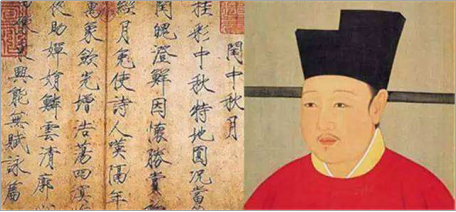 閏中秋月
桂彩中秋特地圓況當
閏魄澄鮮因懷勝賞
經月免使詩人嘆隔年
萬象斂光增浩蕩四溟
夜助嬋娟鱗雲清廓
乘興能無賦詠篇